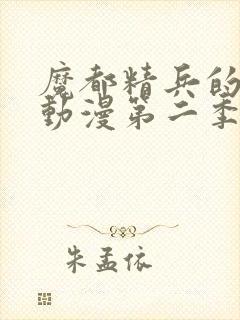 魔都精兵的
動漫第二季
朱孟依